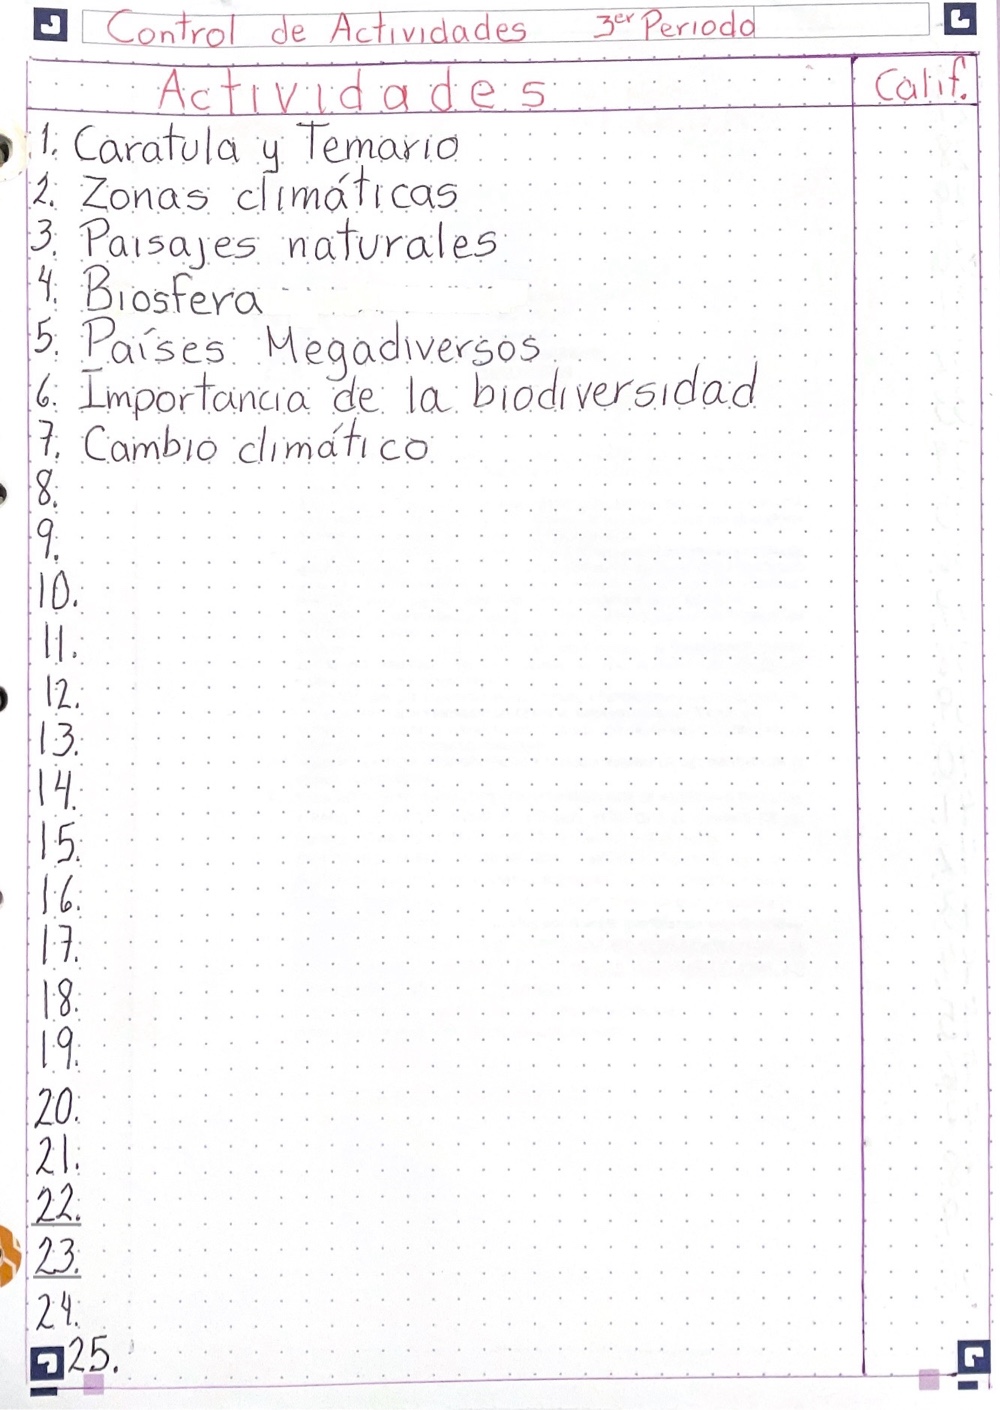 Control de Actividades 3er Periodo
Actividades Calif.
1. Caratula y Temario
2. Zonas climáticas
3. Paisajes naturales
4. Biosfera
5. Países Megadiversos
6. Importancia de la biodiversidad
7. Cambio climático
8.
9.
10.
11.
12.
13.
14.
15.
16.
17.
18.
19.
20.
21.
22.
23.
24.
25.